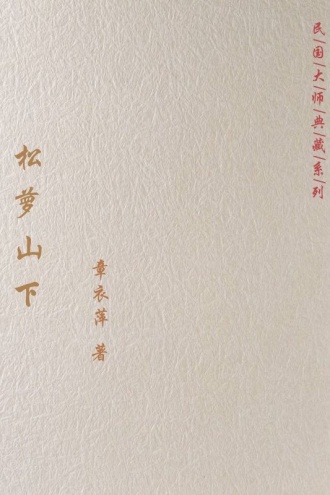 民国大师典藏系列
松萝山下
章衣萍 著